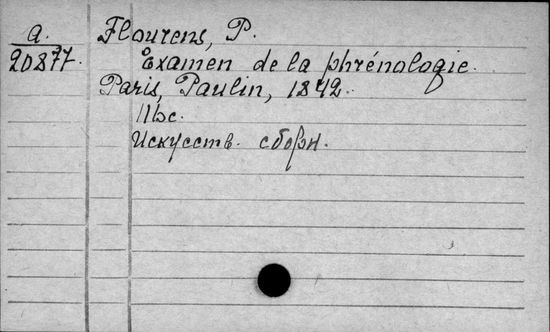 a.
20877.
Flourens, P.
Examen de la phrénologie.
Paris, Paulin, 1842.
116c.
Искусств. сборн.